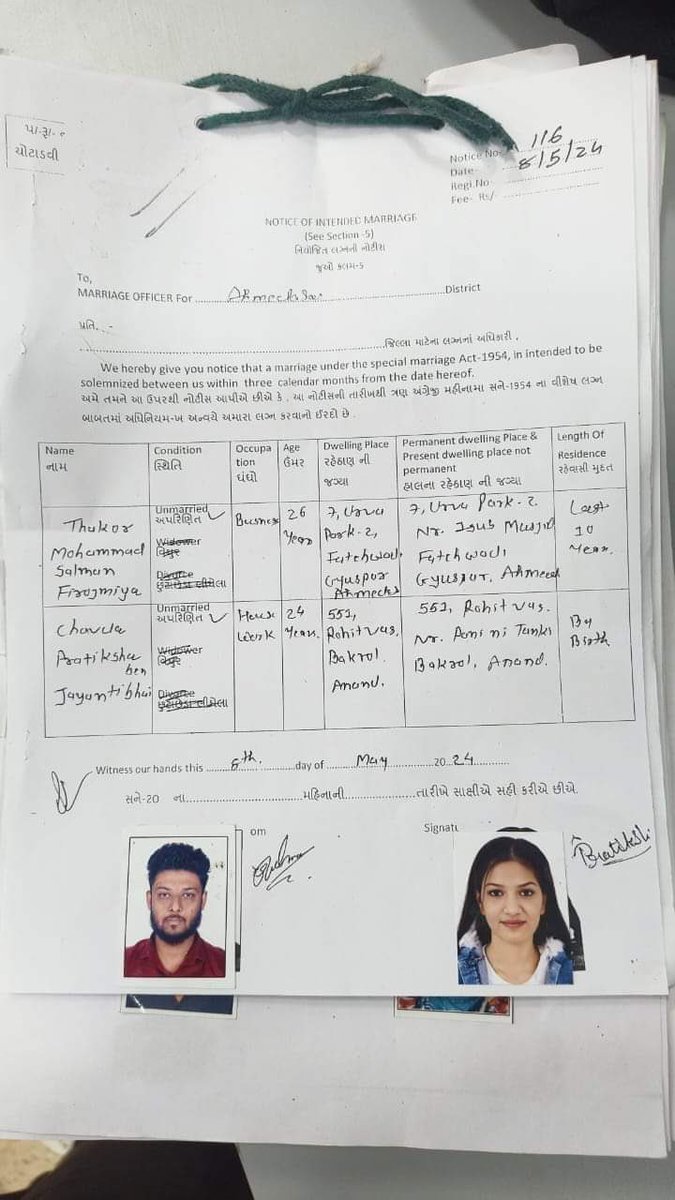 પા.રૂા.૧
ચોટાડવી
Notice No. 116
Date 8/5/24
Regi.No
Fee- Rs/-
NOTICE OF INTENDED MARRIAGE
(See Section -5)
નિયોજિત લગ્નની નોટીસ
જુઓ કલમ-5
To,
MARRIAGE OFFICER For District
પ્રતિ, -
જિલ્લા માટેના લગ્નનાં અધિકારી .
We hereby give you notice that a marriage under the special marriage Act-1954, in intended to be
solemnized between us within three calendar months from the date hereof.
અમે તમને આ ઉપરથી નોટીસ આપીએ છીએ કે . આ નોટીસની તારીખથી ત્રણ અંગ્રેજી મહીનામા સને-1954 ના વીશેષ લગ્ન
બાબતમાં અધિનિયમ-ખ અન્વયે અમારા લગ્ન કરવાનો ઈરદી છે .
Name
નામ
Condition
સ્થિતિ
Occupa
tion
ધંધો
Age
ઉંમર
Dwelling Place
રહેઠાણ ની
જગ્યા
Permanent dwelling Place &
Present dwelling place not
permanent
હાલના રહેઠાણ ની જગ્યા
Length Of
Residence
રહેવાસી મુદત
Thakor
Mohammad
Salman
Firojmiya
Unmarried
અપરિણિત ✓
Widower
વિધુર
Divorce
છુટાછેડા લીધેલા
26
Year
7, Urva
Park-2,
Fatehwadi
Gyaspur
7, Urva Park-2.
Nr. Isus Masjid
Fatehwadi
Gyuspur, Ahmed
Last
10
Year.
Chavda
Pratiksha
ben
Jayantibhai
Unmarried
અપરિણિત ✓
Widower
વિધુર
Divorce
છુટાછેડા લીધેલા
House
Work
24
Year.
551,
Rohitvas,
Bakrol.
Anand.
551, Rohitvas.
Nr. Pani ni Tanki
Bakrol, Anand.
By
Birth
Witness our hands this 8th. day of May 20 24
સને-20 ના મહિનાની તારીખે સાક્ષીએ સહી કરીએ છીએ.
om
Signatu
Pratiksha